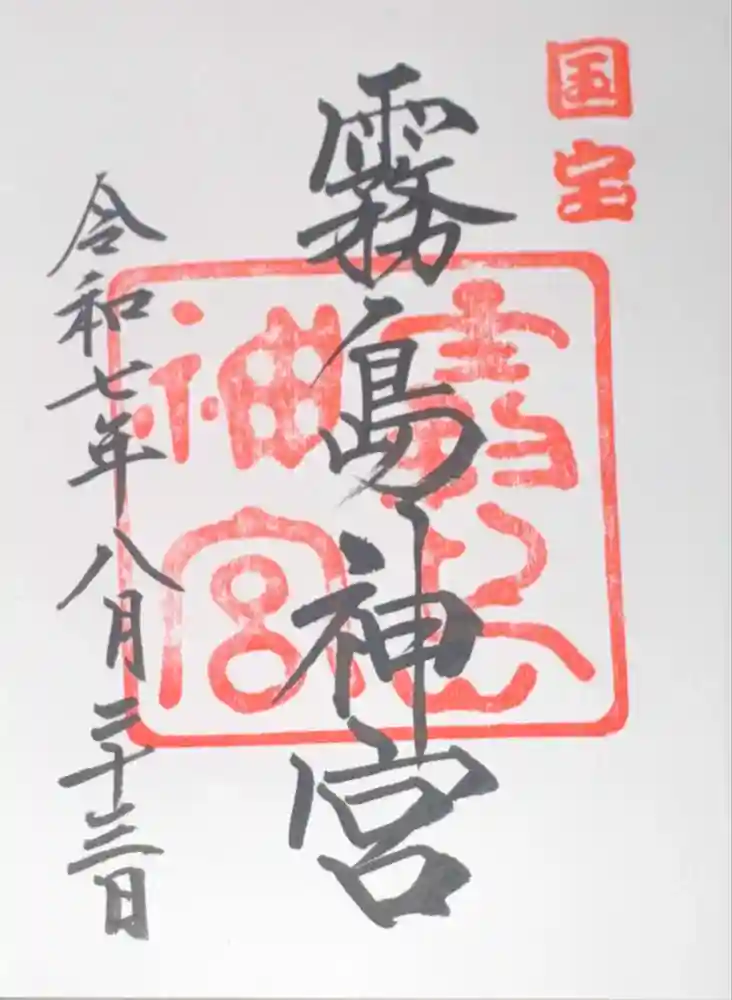 国宝
霧島神宮
霧島神宮
令和七年八月二十三日